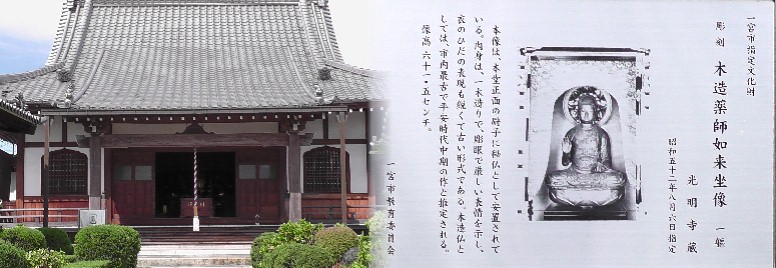 一宮市指定文化財
彫刻 木造薬師如来坐像 一軀
光明寺蔵
昭和五十二年八月六日指定
本像は、本堂正面の厨子に秘仏として安置されて
いる。肉身は、一木造りで、彫眼で厳しい表情を示し、
衣のひだの表現も鋭くて古い形式である。木造仏と
しては、市内最古で平安時代中期の作と推定される。
像高 六十一・五センチ。
一宮市教育委員会